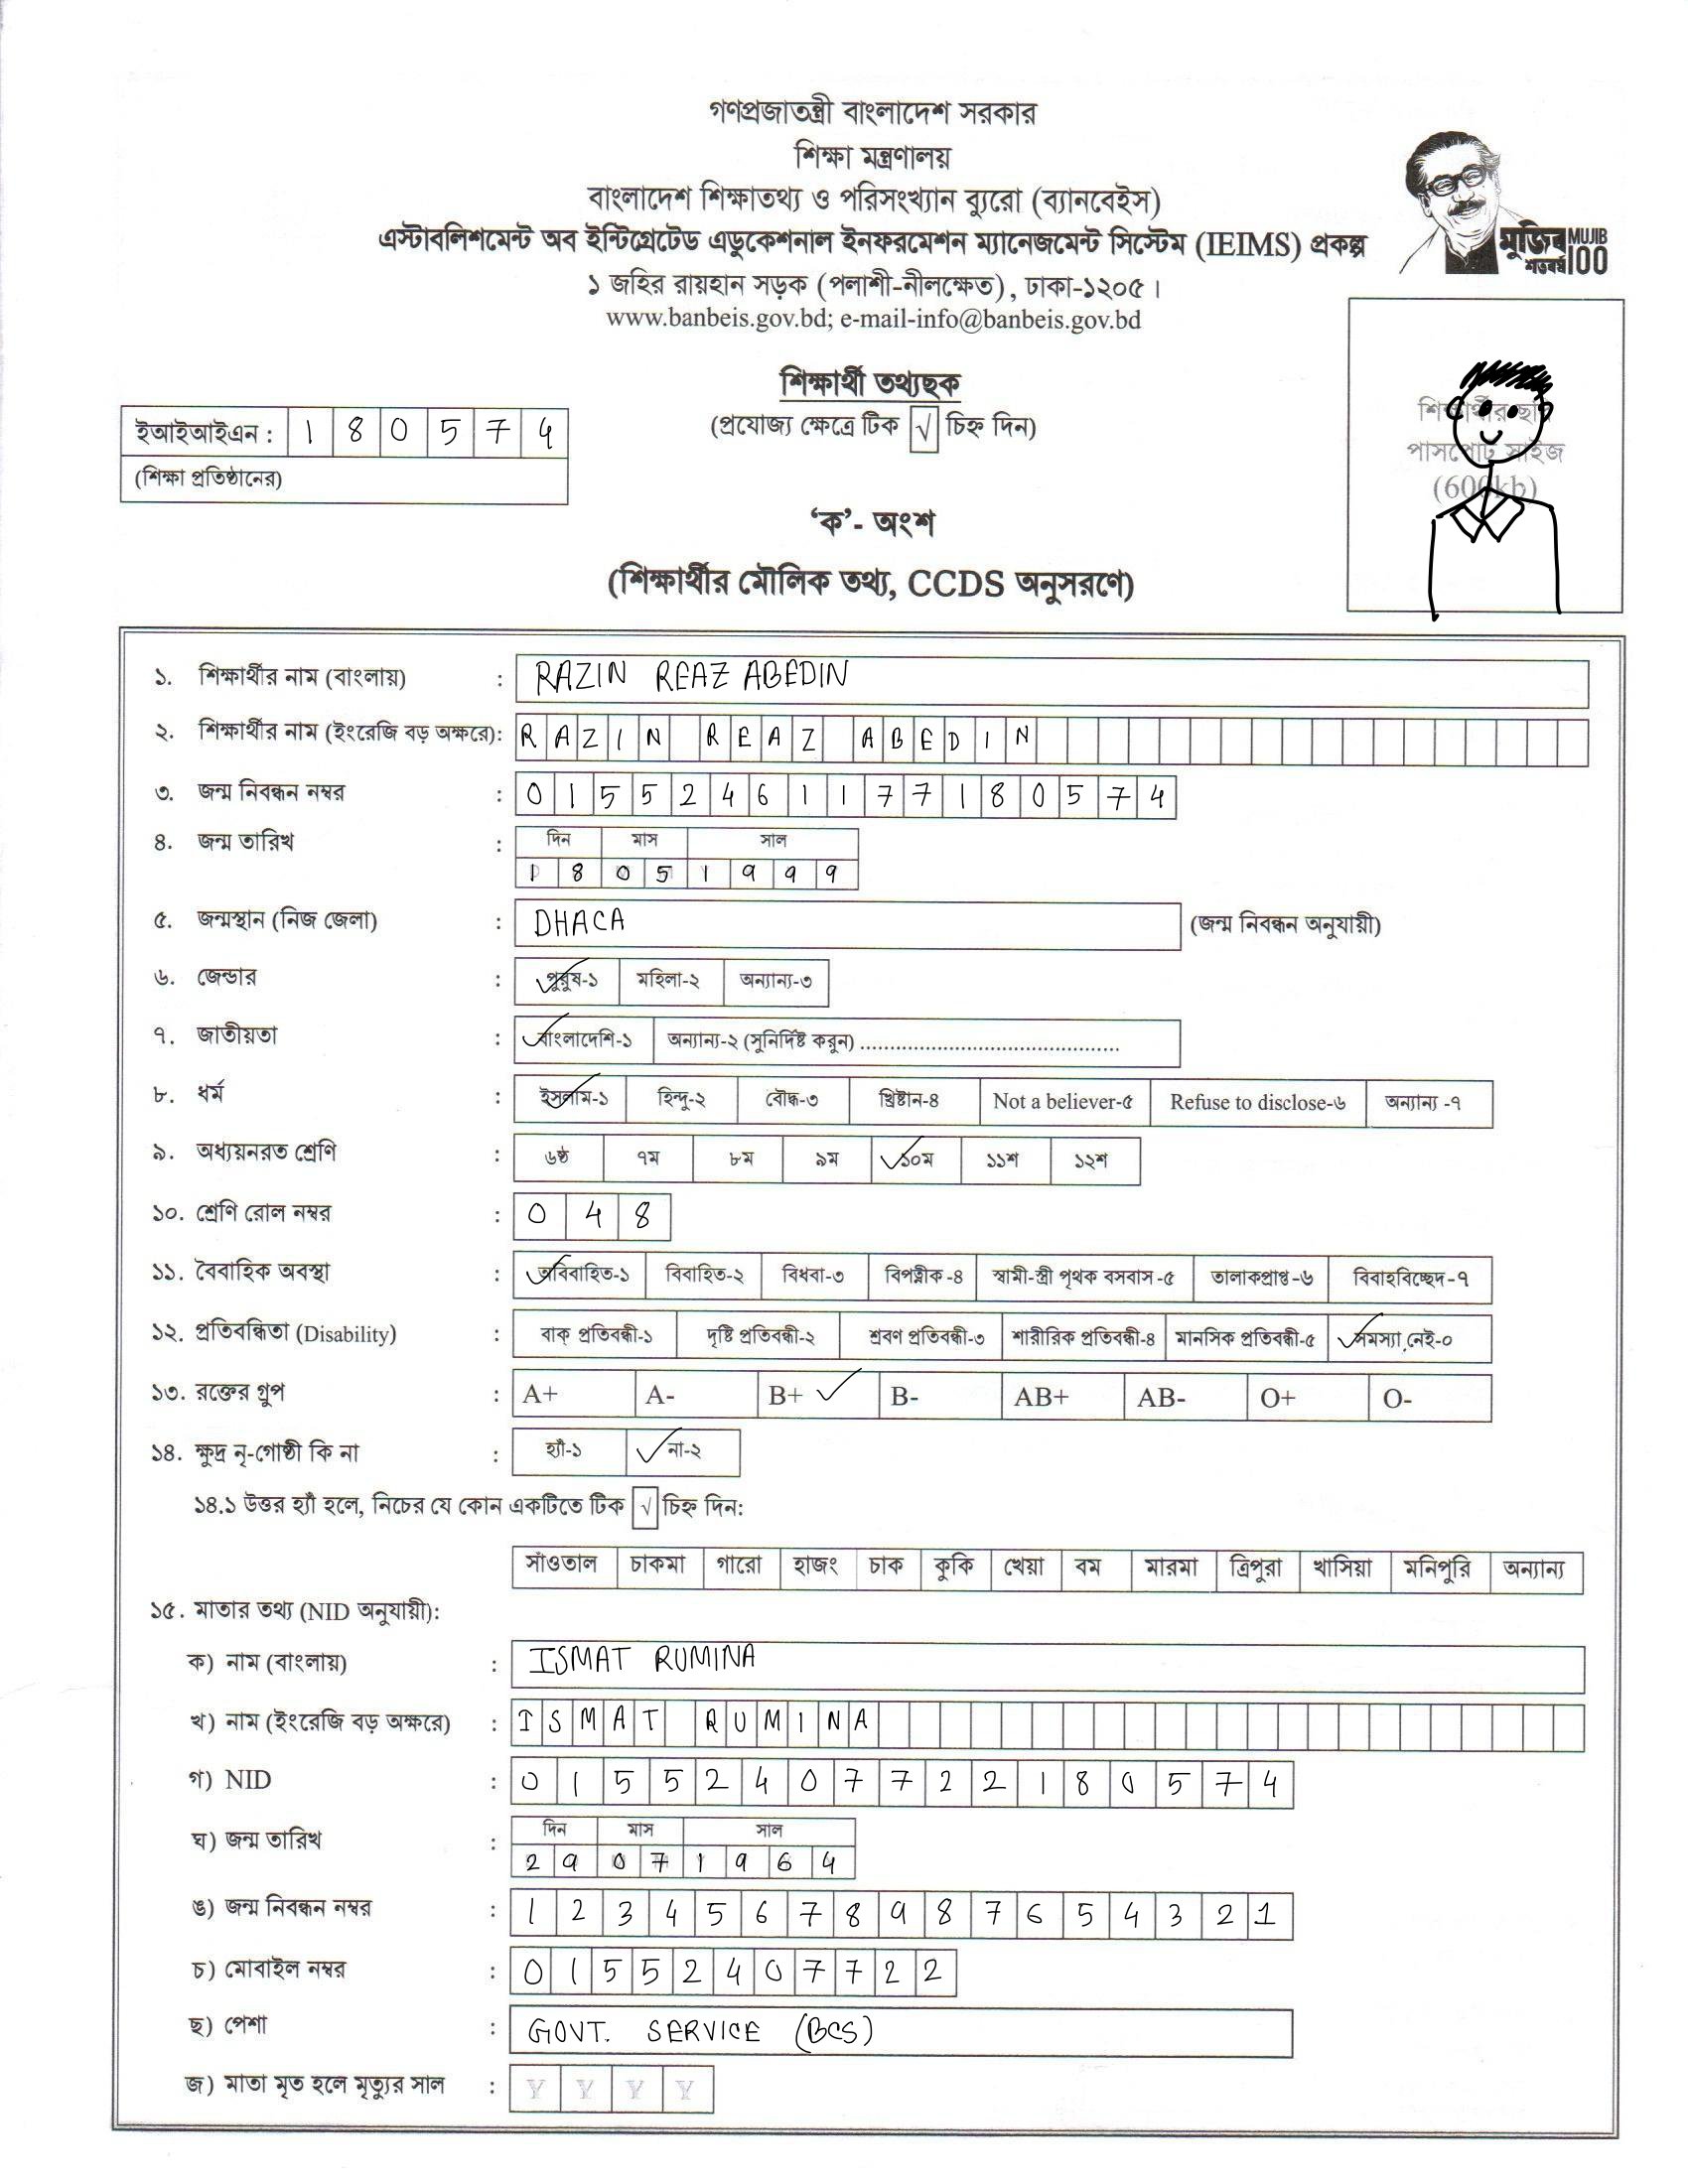 গণপ্রজাতন্ত্রী বাংলাদেশ সরকার
শিক্ষা মন্ত্রণালয়
বাংলাদেশ শিক্ষাতথ্য ও পরিসংখ্যান ব্যুরো (ব্যানবেইস)
এস্টাবলিশমেন্ট অব ইন্টিগ্রেটেড এডুকেশনাল ইনফরমেশন ম্যানেজমেন্ট সিস্টেম (IEIMS) প্রকল্প
মুজিব MUJIB
শতবর্ষ 100
১ জহির রায়হান সড়ক (পলাশী-নীলক্ষেত), ঢাকা-১২০৫।
www.banbeis.gov.bd; e-mail-info@banbeis.gov.bd
শিক্ষার্থী তথ্যছক
(প্রযোজ্য ক্ষেত্রে টিক √ চিহ্ন দিন)
ইআইআইএন : 1 8 0 5 7 4
(শিক্ষা প্রতিষ্ঠানের)
শিক্ষার্থীর ছবি
পাসপোর্ট সাইজ
(600kb)
‘ক’- অংশ
(শিক্ষার্থীর মৌলিক তথ্য, CCDS অনুসরণে)
১. শিক্ষার্থীর নাম (বাংলায়) : RAZIN REAZ ABEDIN
২. শিক্ষার্থীর নাম (ইংরেজি বড় অক্ষরে): RAZIN REAZ ABEDIN
৩. জন্ম নিবন্ধন নম্বর : 0 1 5 5 2 4 6 1 1 7 7 1 8 0 5 7 4
৪. জন্ম তারিখ : দিন মাস সাল
1 8 0 5 1 9 9 9
৫. জন্মস্থান (নিজ জেলা) : DHACA (জন্ম নিবন্ধন অনুযায়ী)
৬. জেন্ডার : পুরুষ-১ মহিলা-২ অন্যান্য-৩
৭. জাতীয়তা : বাংলাদেশি-১ অন্যান্য-২ (সুনির্দিষ্ট করুন) ............................................
৮. ধর্ম : ইসলাম-১ হিন্দু-২ বৌদ্ধ-৩ খ্রিষ্টান-৪ Not a believer-৫ Refuse to disclose-৬ অন্যান্য -৭
৯. অধ্যয়নরত শ্রেণি : ৬ষ্ঠ ৭ম ৮ম ৯ম ১০ম ১১শ ১২শ
১০. শ্রেণি রোল নম্বর : 0 4 8
১১. বৈবাহিক অবস্থা : অবিবাহিত-১ বিবাহিত-২ বিধবা-৩ বিপত্নীক -৪ স্বামী-স্ত্রী পৃথক বসবাস -৫ তালাকপ্রাপ্ত -৬ বিবাহবিচ্ছেদ -৭
১২. প্রতিবন্ধিতা (Disability) : বাক্ প্রতিবন্ধী-১ দৃষ্টি প্রতিবন্ধী-২ শ্রবণ প্রতিবন্ধী-৩ শারীরিক প্রতিবন্ধী-৪ মানসিক প্রতিবন্ধী-৫ সমস্যা নেই-০
১৩. রক্তের গ্রুপ : A+ A- B+ B- AB+ AB- O+ O-
১৪. ক্ষুদ্র নৃ-গোষ্ঠী কি না : হ্যাঁ-১ না-২
১৪.১ উত্তর হ্যাঁ হলে, নিচের যে কোন একটিতে টিক √ চিহ্ন দিন:
সাঁওতাল চাকমা গারো হাজং চাক কুকি খেয়া বম মারমা ত্রিপুরা খাসিয়া মনিপুরি অন্যান্য
১৫. মাতার তথ্য (NID অনুযায়ী):
ক) নাম (বাংলায়) : ISMAT RUMINA
খ) নাম (ইংরেজি বড় অক্ষরে) : ISMAT RUMINA
গ) NID : 0 1 5 5 2 4 0 7 7 2 2 1 8 0 5 7 4
ঘ) জন্ম তারিখ : দিন মাস সাল
2 9 0 7 1 9 6 4
ঙ) জন্ম নিবন্ধন নম্বর : 1 2 3 4 5 6 7 8 9 8 7 6 5 4 3 2 1
চ) মোবাইল নম্বর : 0 1 5 5 2 4 0 7 7 2 2
ছ) পেশা : GOVT. SERVICE (BCS)
জ) মাতা মৃত হলে মৃত্যুর সাল : Y Y Y Y